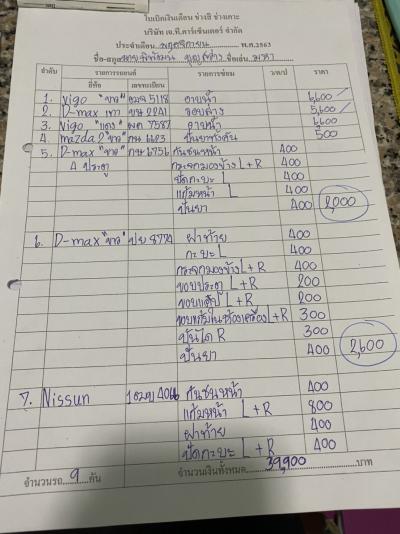 ใบเบิกเงินเดือน ช่างสี ช่างเคาะ
บริษัท เจ.ที.คาร์เซ็นเตอร์ จำกัด
ประจำเดือน พฤศจิกายน พ.ศ.2563
ชื่อ-สกุล ชื่อเล่น
ลำดับ รายการรถยนต์ รายการซ่อม ว/ด/ป ราคา
ยี่ห้อ เลขทะเบียน
1. Vigo "ขาว" 5118 อาบน้ำ 6,600/
2. D-max เทา 2241 รอบคัน 5,600/
3. Vigo "แดง" 7587 อาบน้ำ 6600
4. mazda2 "ขาว" 6623 ปั่นยาทั้งคัน 500
5. D-max "ขาว" 6756 กันชนหน้า 400
4 ประตู กระจกมองข้าง L+R 400
ปิดกะบะ L 400
แก้มหน้า L 400
ปั่นยา 400 2,000
6. D-max "ขาว" 8774 ฝาท้าย 400
กะบะ L 400
กระจกมองข้าง L+R 400
ขอบประตู L+R 200
L+R 200
L+R 300
บันได R 300
ปั่นยา 400 2,600
7. Nissun กันชนหน้า 400
แก้มหน้า L+R 800
ฝาท้าย 400
ปิดกะบะ L+R 400
จำนวนรถ 9 คัน จำนวนเงินทั้งหมด 39,900 บาท